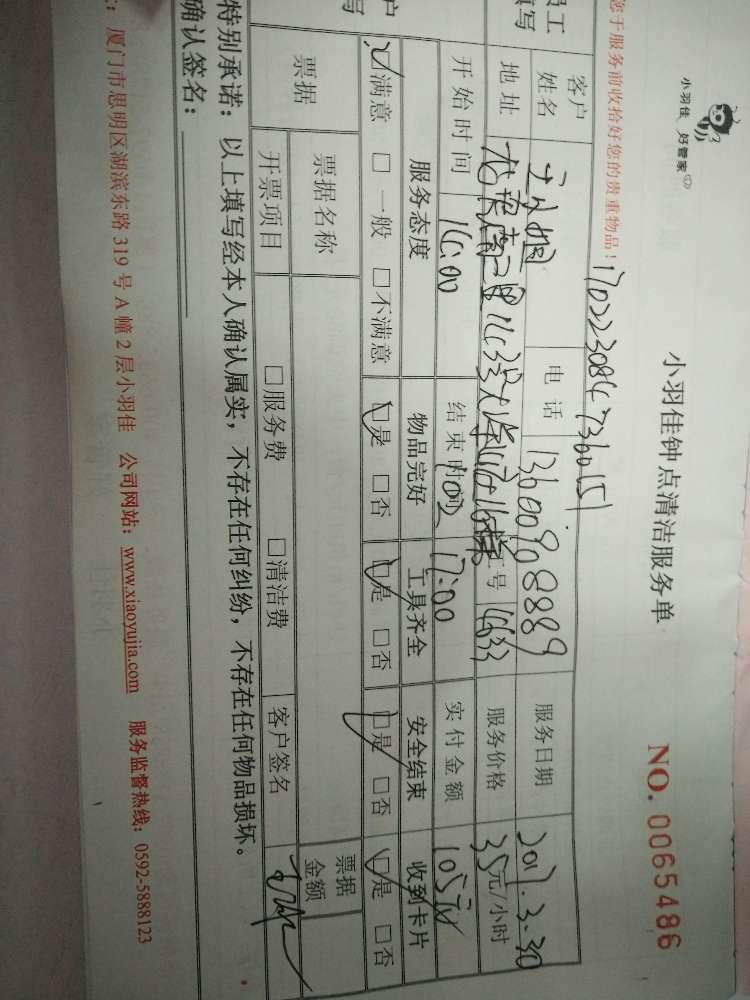 小羽佳 好管家
小羽佳钟点清洁服务单
NO. 0065486
您于服务前收拾好您的贵重物品！
客户
姓名
电话 13600908889
服务日期 2017.3.30
员工
填写
地址
号 1633
服务价格 35元/小时
开始时间 16:00 结束时间 17:00 实付金额 105元
客户
写
服务态度 物品完好 工具齐全 安全结束 收到卡片
☑满意 □一般 □不满意 ☑是 □否 ☑是 □否 ☑是 □否 ☑是 □否
票据
票据名称 票据金额
开票项目 □服务费 □清洁费 客户签名
特别承诺：以上填写经本人确认属实，不存在任何纠纷，不存在任何物品损坏。
确认签名：
：厦门市思明区湖滨东路 319 号 A 幢 2 层小羽佳 公司网站：www.xiaoyujia.com 服务监督热线：0592-5888123